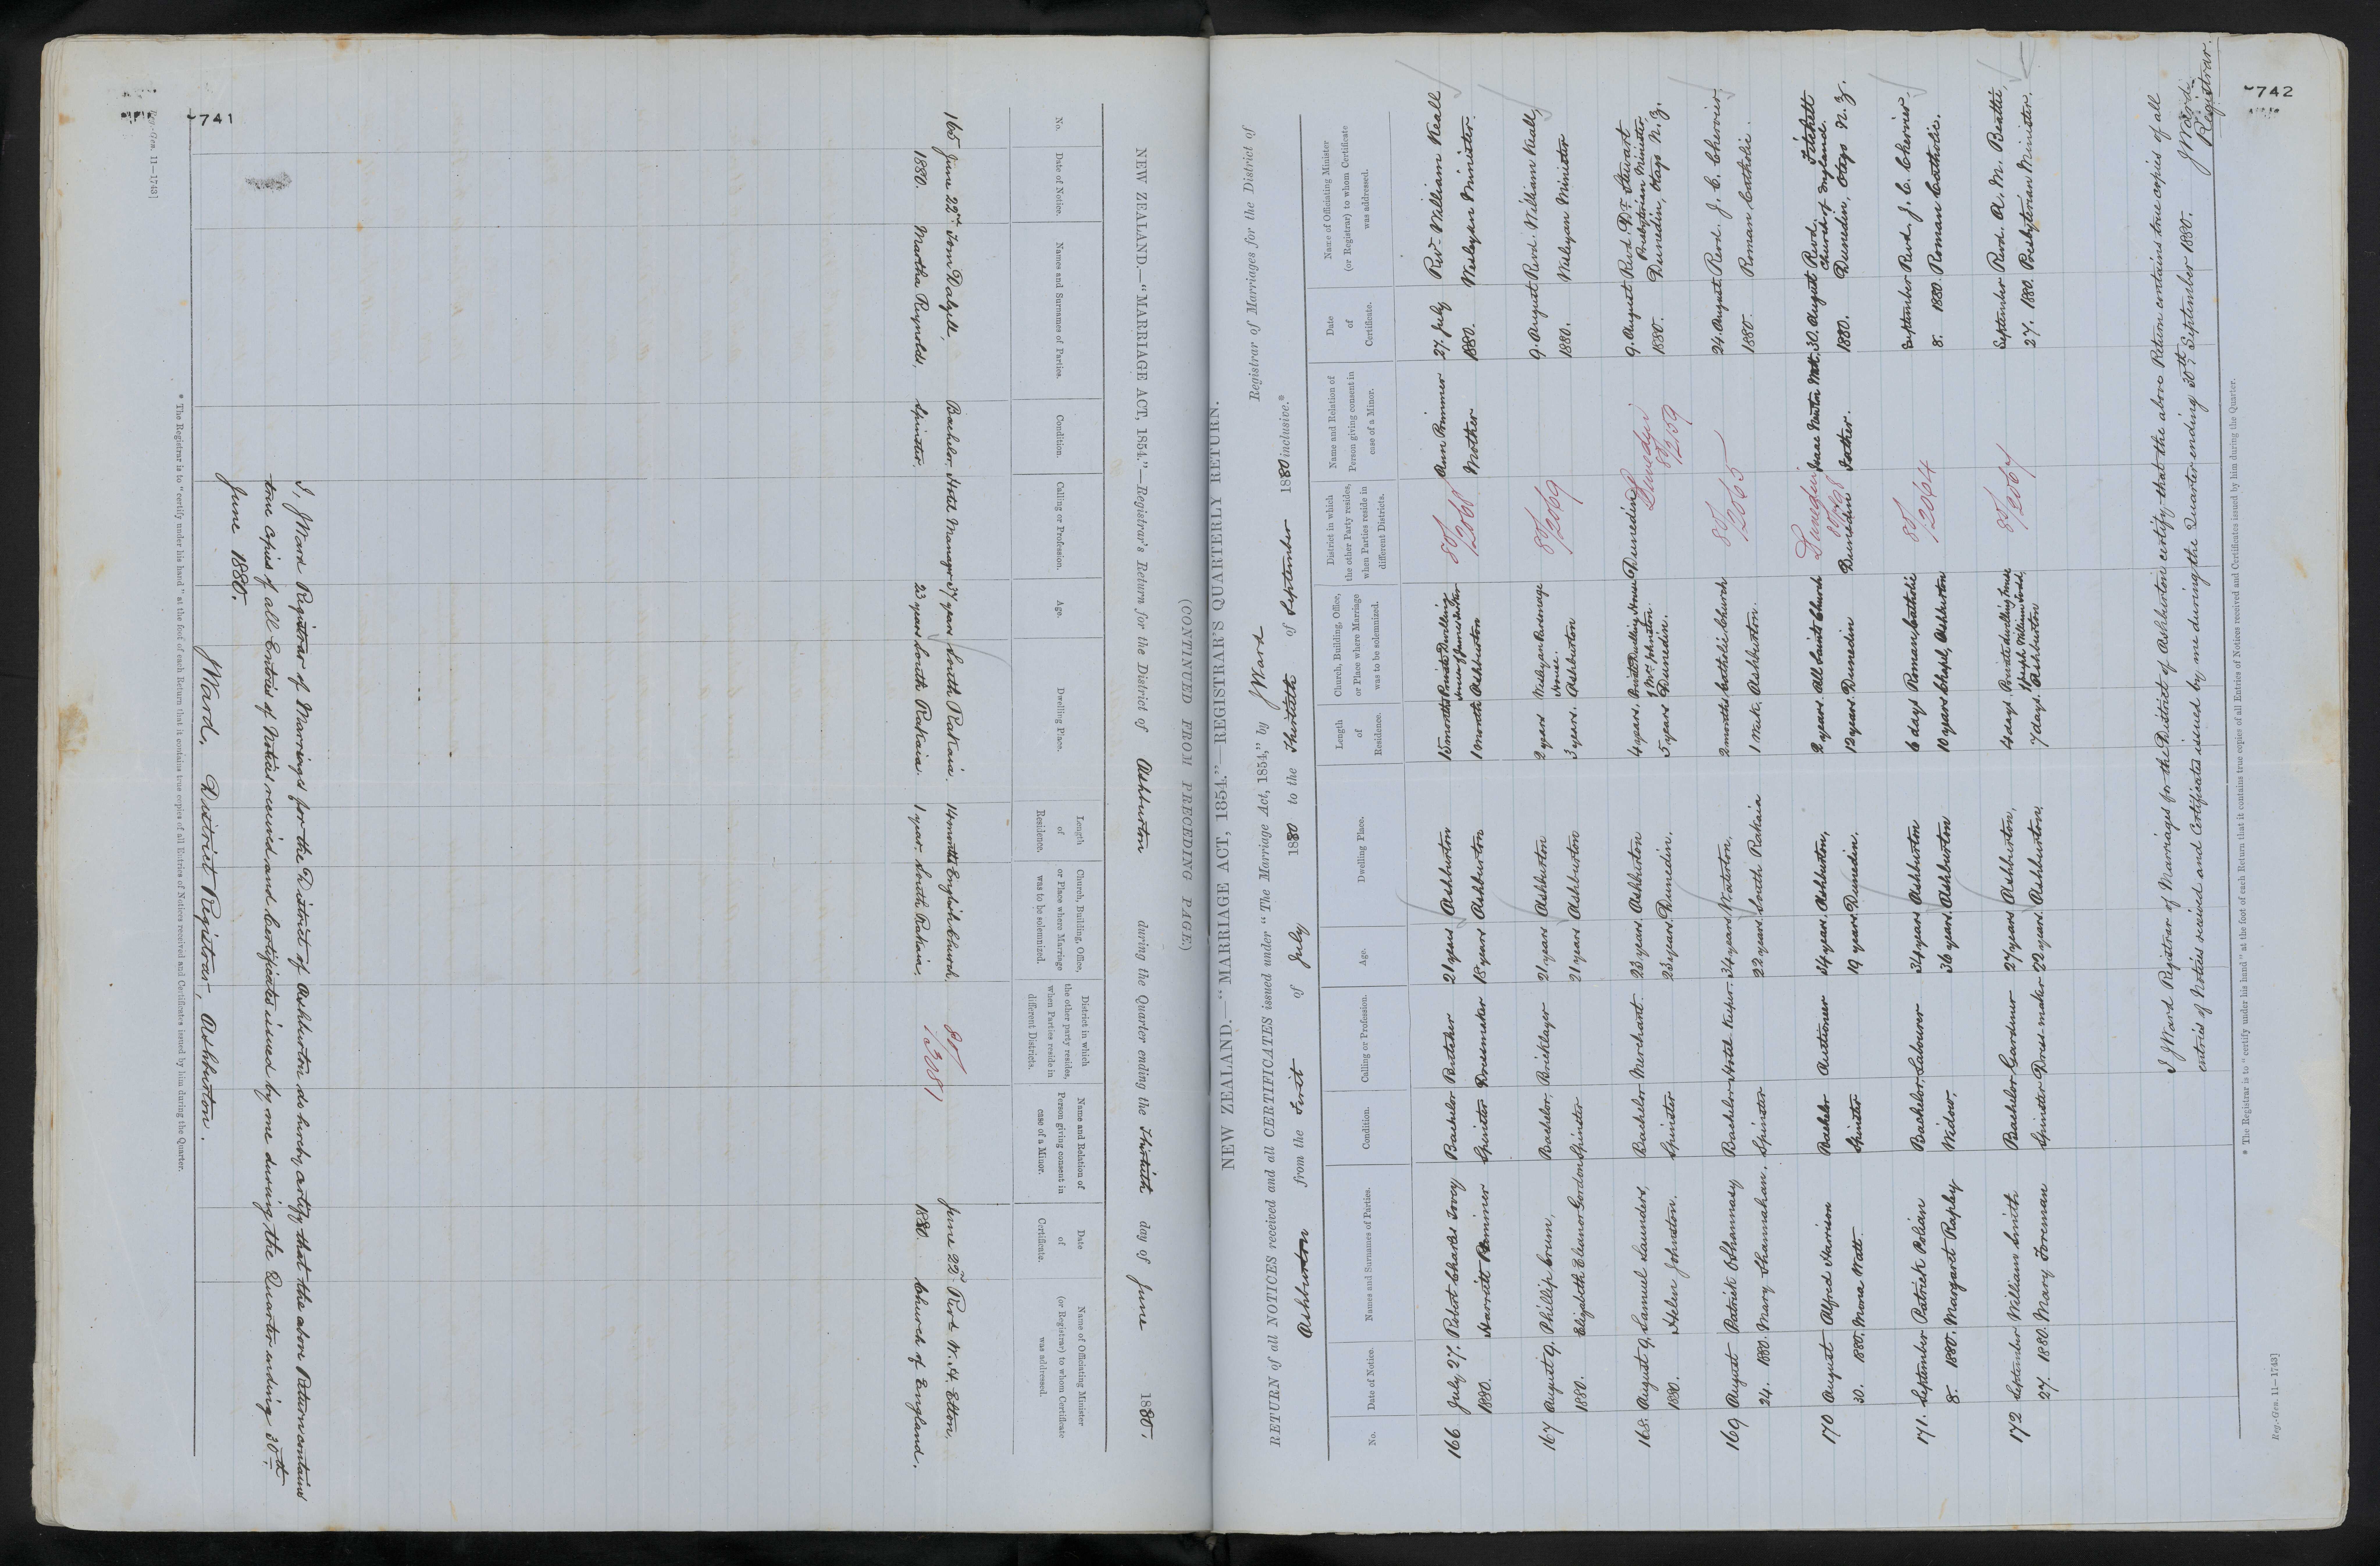 741
NEW ZEALAND.—"MARRIAGE ACT, 1854."—Registrar's Return for the District of Ashburton during the Quarter ending the Thirtieth day of June 1880.
(CONTINUED FROM PRECEDING PAGE.)
No. Date of Notice. Names and Surnames of Parties. Condition. Calling or Profession. Age. Dwelling Place. Length of Residence. Church, Building, Office, or Place where Marriage was to be solemnized. District in which the other party resides, when Parties reside in different Districts. Name and Relation of Person giving consent in case of a Minor. Date of Certificate. Name of Officiating Minister (or Registrar) to whom Certificate was addressed.
165 June 22nd Tom Dalzell, Bachelor Hotel Manager 37 years South Rakaia. 14 months English Church, 80/ June 22nd Revd W. H. Elton,
1880. Martha Reynolds, Spinster. 23 years South Rakaia. 1 year. South Rakaia. /1398 1880. Church of England.
I, J Ward Registrar of Marriages for the District of Ashburton do hereby certify that the above Return contains
true copies of all Entries of Notices received and Certificates issued by me during the Quarter ending 30th
June 1880.
J Ward, District Registrar, Ashburton.
* The Registrar is to "certify under his hand" at the foot of each Return that it contains true copies of all Entries of Notices received and Certificates issued by him during the Quarter.
Reg.-Gen. 11—1743]
742
NEW ZEALAND.—"MARRIAGE ACT, 1854."—REGISTRAR'S QUARTERLY RETURN.
RETURN of all NOTICES received and all CERTIFICATES issued under "The Marriage Act, 1854," by J Ward Registrar of Marriages for the District of
Ashburton from the First of July 1880 to the Thirtieth of September 1880 inclusive.*
No. Date of Notice. Names and Surnames of Parties. Condition. Calling or Profession. Age. Dwelling Place. Length of Residence. Church, Building, Office, or Place where Marriage was to be solemnized. District in which the other Party resides, when Parties reside in different Districts. Name and Relation of Person giving consent in case of a Minor. Date of Certificate. Name of Officiating Minister (or Registrar) to whom Certificate was addressed.
166 July 27. Robert Charles Bachelor Butcher 21 years Ashburton 15 months Private Dwelling House of James 80/ Ann Primmer 27 July Revd William Keall
1880. Harriett Primmer Spinster Dressmaker 18 years Ashburton 1 month Ashburton /2068 Mother 1880. Wesleyan Minister.
167 August 9. Phillip Crum, Bachelor, Bricklayer 21 years Ashburton 2 years Wesleyan Parsonage House. 80/ 9. August Revd. William Keall
1880. Elizabeth Eleanor Gordon Spinster 21 years Ashburton 3 years. Ashburton /2069 1880. Wesleyan Minister
168. August 9, Samuel Saunders, Bachelor Merchant. 23 years. Ashburton 4 years. Private Dwelling House of Mrs Johnston. Dunedin Dunedin 9. August Revd Dr. Stewart Presbyterian Minister,
1880. Helen Johnston. Spinster 23 years. Dunedin. 5 years Dunedin. 80/2159 1880. Dunedin, Otago N.Z.
169 August Patrick O'Shannasy Bachelor Hotel Keeper. 34 years Winton, 2 months Catholic Church 80/ 24. August Revd. J. C. Chervier,
24. 1880. Mary Shannahan. Spinster 22 years South Rakaia 1 Week, Ashburton. /2065 1880. Roman Catholic.
170 August Alfred Harrison Bachelor Auctioneer 34 years. Ashburton, 2 years. All Saints Church Dunedin Isaac Newton Watt. 30. August Revd. Fitchett Church of England.
30. 1880. Mona Watt. Spinster 19 years. Dunedin. 12 years. Dunedin Dunedin Father. 1880. Dunedin, Otago N.Z.
171. September Patrick Bachelor, Labourer 34 years Ashburton 6 days Roman Catholic 80/ September Revd. J. C. Chervier.
8. 1880. Margaret Rapley Widow. 36 years. Ashburton 10 years Chapel, Ashburton /2064 8. 1880. Roman Catholic.
172 September William Smith Bachelor Gardener 27 years Ashburton, 4 days. Private dwelling House 80/ September Revd. A. M. Beattie,
27. 1880. Mary Foreman Spinster Dress-maker 22 years. Ashburton, 7 days. Ashburton /2067 27. 1880. Presbyterian Minister.
I J Ward Registrar of Marriages for the District of Ashburton certify that the above Return contains true copies of all
entries of Notices received and Certificates issued by me during the Quarter ending 30th September 1880.
J Ward
Registrar.
* The Registrar is to "certify under his hand" at the foot of each Return that it contains true copies of all Entries of Notices received and Certificates issued by him during the Quarter.
Reg.-Gen. 11—1743]